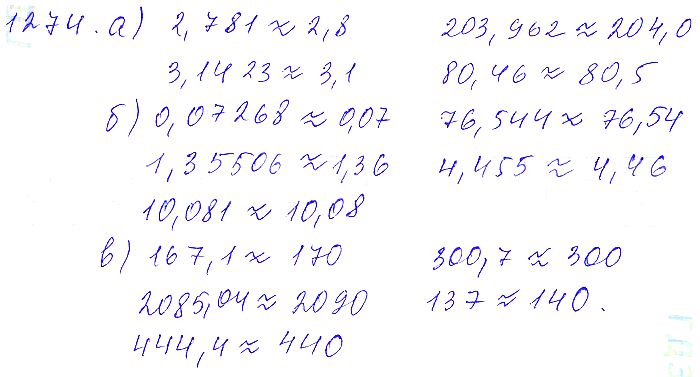 1274. а) 2,781 ≈ 2,8 203,962 ≈ 204,0
3,1423 ≈ 3,1 80,46 ≈ 80,5
б) 0,07268 ≈ 0,07 76,544 ≈ 76,54
1,35506 ≈ 1,36 4,455 ≈ 4,46
10,081 ≈ 10,08
в) 167,1 ≈ 170 300,7 ≈ 300
2085,04 ≈ 2090 137 ≈ 140.
444,4 ≈ 440